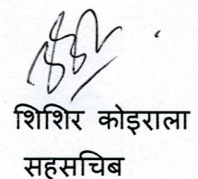 शिशिर कोइराला
सहसचिब